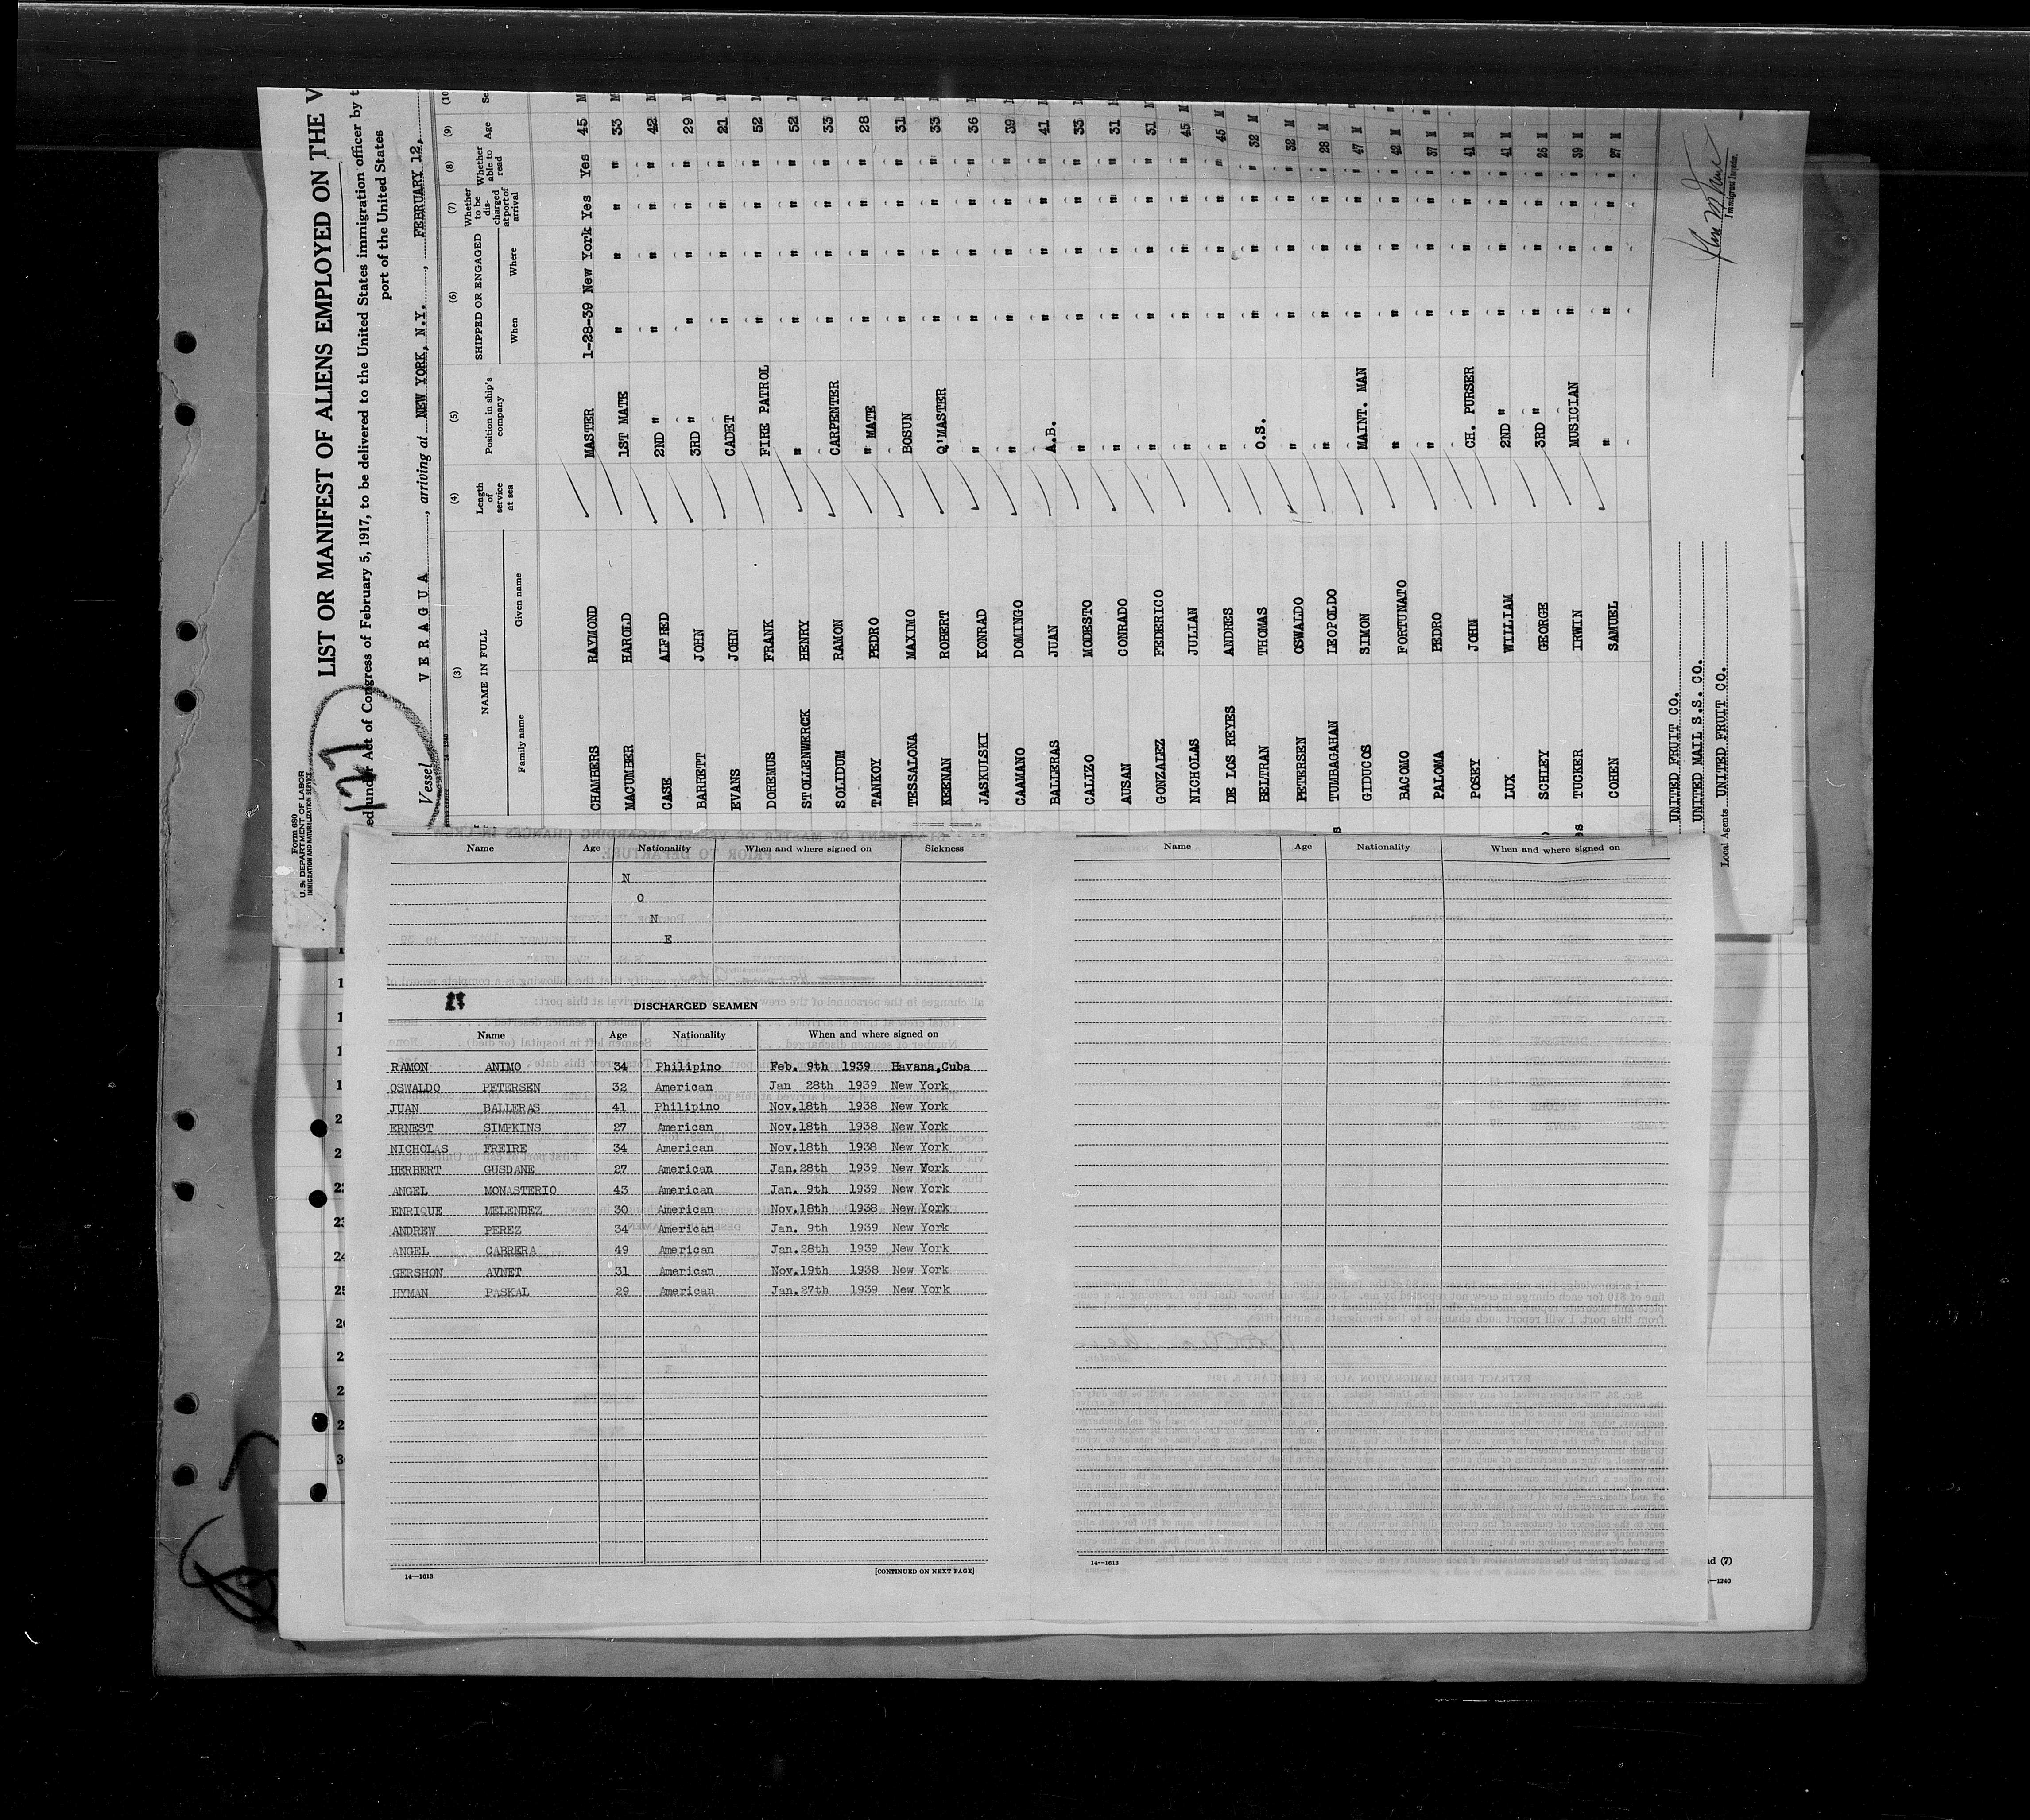 Form 680
U. S. DEPARTMENT OF LABOR
IMMIGRATION AND NATURALIZATION SERVICE
127
LIST OR MANIFEST OF ALIENS EMPLOYED ON THE V
ed under Act of Congress of February 5, 1917, to be delivered to the United States immigration officer by t
port of the United States
Vessel VERAGUA, arriving at NEW YORK, N.Y., FEBRUARY 12,
(3) (4) (5) (6) (7) (8) (9) (10
NAME IN FULL Length of service at sea Position in ship's company SHIPPED OR ENGAGED Whether to be dis-charged at port of arrival Whether able to read Age Se
Family name Given name When Where
CHAMBERS RAYMOND MASTER 1-28-39 New York Yes Yes 45 M
MACUMBER HAROLD 1ST MATE " " " " 33 M
CASE ALFRED 2ND " " " " " 42 M
BARRETT JOHN 3RD " " " " " 29 M
EVANS JOHN CADET " " " " 21 M
DOREMUS FRANK FIRE PATROL " " " " 52 M
STOLLENWERCK HENRY " " " " " 52 M
SOLIDUM RAMON CARPENTER " " " " 33 M
TANKOY PEDRO " MATE " " " " 28 M
TESSALONA MAXIMO BOSUN " " " " 31 M
KEENAN ROBERT Q'MASTER " " " " 33 M
JASKULSKI KONRAD " " " " " 36 M
CAAMANO DOMINGO " " " " " 39 M
BALLERAS JUAN A.B. " " " " 41 M
CALIZO MODESTO " " " " " 33 M
AUSAN CONRADO " " " " " 31 M
GONZALEZ FEDERICO " " " " " 31 M
NICHOLAS JULIAN " " " " " 45 M
DE LOS REYES ANDRES " " " " " 45 M
BELTRAN THOMAS O.S. " " " " 32 M
PETERSEN OSWALDO " " " " " 32 M
TUMBAGAHAN LEOPOLDO " " " " " 28 M
GIDUCOS SIMON MAINT. MAN " " " " 47 M
BACOMO FORTUNATO " " " " " 42 M
PALOMA PEDRO " " " " " 37 M
POSEY JOHN CH. PURSER " " " " 41 M
LUX WILLIAM 2ND " " " " " 41 M
SCHLEY GEORGE 3RD " " " " " 26 M
TUCKER IRWIN MUSICIAN " " " " 39 M
COHEN SAMUEL " " " " " 27 M
UNITED FRUIT CO.
UNITED MAIL S.S. CO.
Local Agents UNITED FRUIT CO.
Immigrant Inspector.
Name Age Nationality When and where signed on Sickness
N
O
N
E
DISCHARGED SEAMEN
Name Age Nationality When and where signed on
RAMON ANIMO 34 Philipino Feb. 9th 1939 Havana,Cuba
OSWALDO PETERSEN 32 American Jan 28th 1939 New York
JUAN BALLERAS 41 Philipino Nov.18th 1938 New York
ERNEST SIMPKINS 27 American Nov.18th 1938 New York
NICHOLAS FREIRE 34 American Nov.18th 1938 New York
HERBERT GUSDANE 27 American Jan.28th 1939 New York
ANGEL MONASTERIO 43 American Jan. 9th 1939 New York
ENRIQUE MELENDEZ 30 American Nov.18th 1938 New York
ANDREW PEREZ 34 American Jan. 9th 1939 New York
ANGEL CABRERA 49 American Jan.28th 1939 New York
GERSHON AVNET 31 American Nov.19th 1938 New York
HYMAN PASKAL 29 American Jan.27th 1939 New York
14—1613
[CONTINUED ON NEXT PAGE]
Name Age Nationality When and where signed on
14—1613
nd (7)
—1240